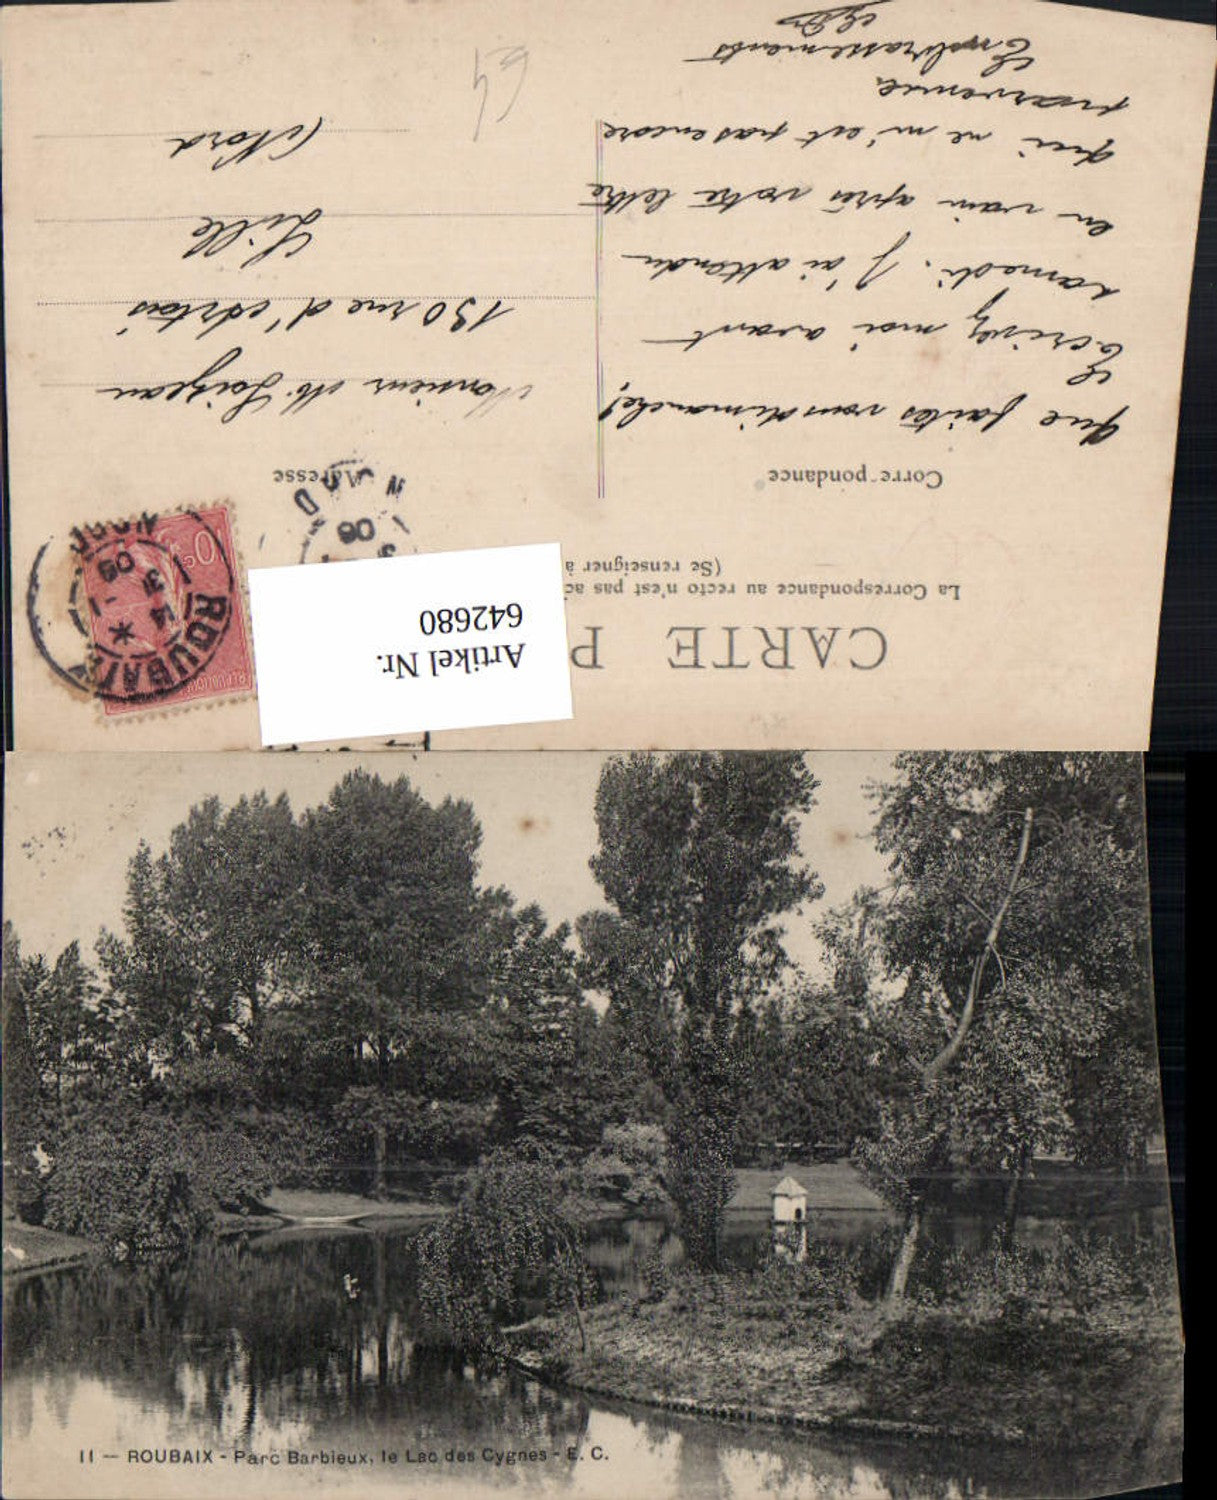 CARTE P
La Correspondance au recto n'est pas ac
(Se renseigner à
Corre·pondance
Adresse
Que faites vous dimanche!
Ecrivez moi avant
samedi. J'ai attendu
en vain après votre lettre
qui ne m'est pas encore
parvenue
Embrassements
Monsieur M. Loizeau
130 rue d'Artois
Lille
(Nord
64
Artikel Nr.
642680
ROUBAIX
14
3
05
NORD
3
06
NORD
11 — ROUBAIX - Parc Barbieux, le Lac des Cygnes - E. C.